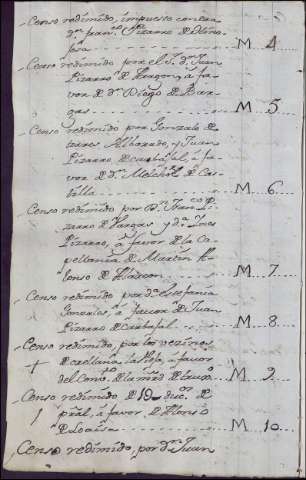 Censo redimido, impuesto contra
dn. franco. Pizarro de Hino
josa . . . . . . M. 4
Censo redimido por el Sr. dn. Juan
Pizarro de Aragon, á fa
vor de dn. Diego de Bar
gas . . . . . . M. 5
Censo redimido por Gonzalo de
torres Albarado, y Juan
Pizarro de carbajal, á fa
vor de dn. Melchor de Cas
tilla . . . . . . M. 6
Censo redimido por dn. Franco. Pi
zarro de Vargas y da. Ines
Pizarro, á favor de la Ca
pellania de Martin A
lonso de Alarcon . . . M. 7
Censo redimido por da. Estefania
Gonzales, á favor de Juan
Pizarro de carbajal . . . M. 8
Censo redimido, por los vezinos
de orellana la Vieja, á favor
del Conto. de la mrd. de trux.o M. 9
Censo redimido de 12 duc.s de
pral. á favor de Alonso
de Loaisa . . . . M. 10
Censo redimido, por dn. Juan